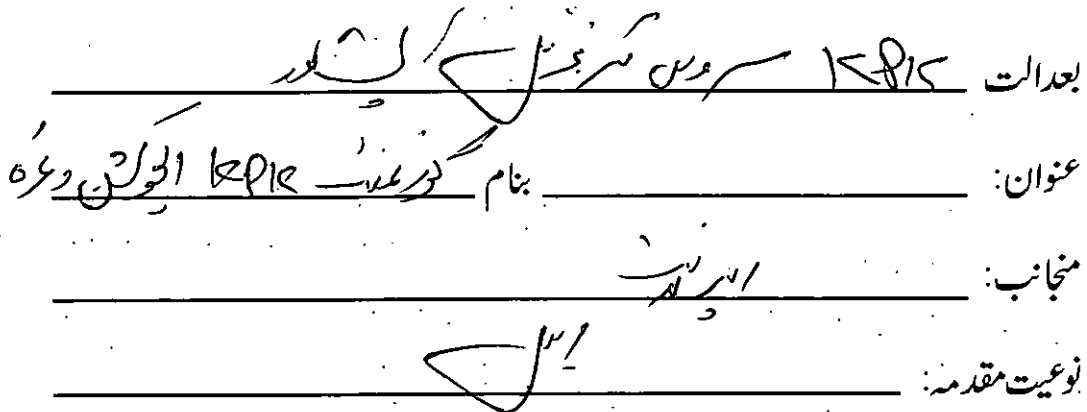 بعدالت KPK سروس ٹریبونل پشاور
عنوان: بنام گورنمنٹ KPK ایجوکیشن وغیرہ
منجانب: اپیلانٹ
نوعیت مقدمہ: اپیل